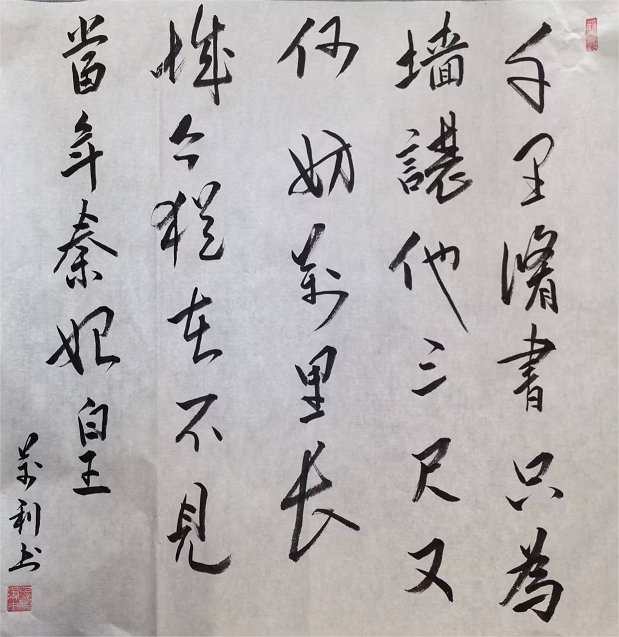 千里修書只為
墙讓他三尺又
何妨萬里長
城今猶在不見
當年秦始皇
萬利书